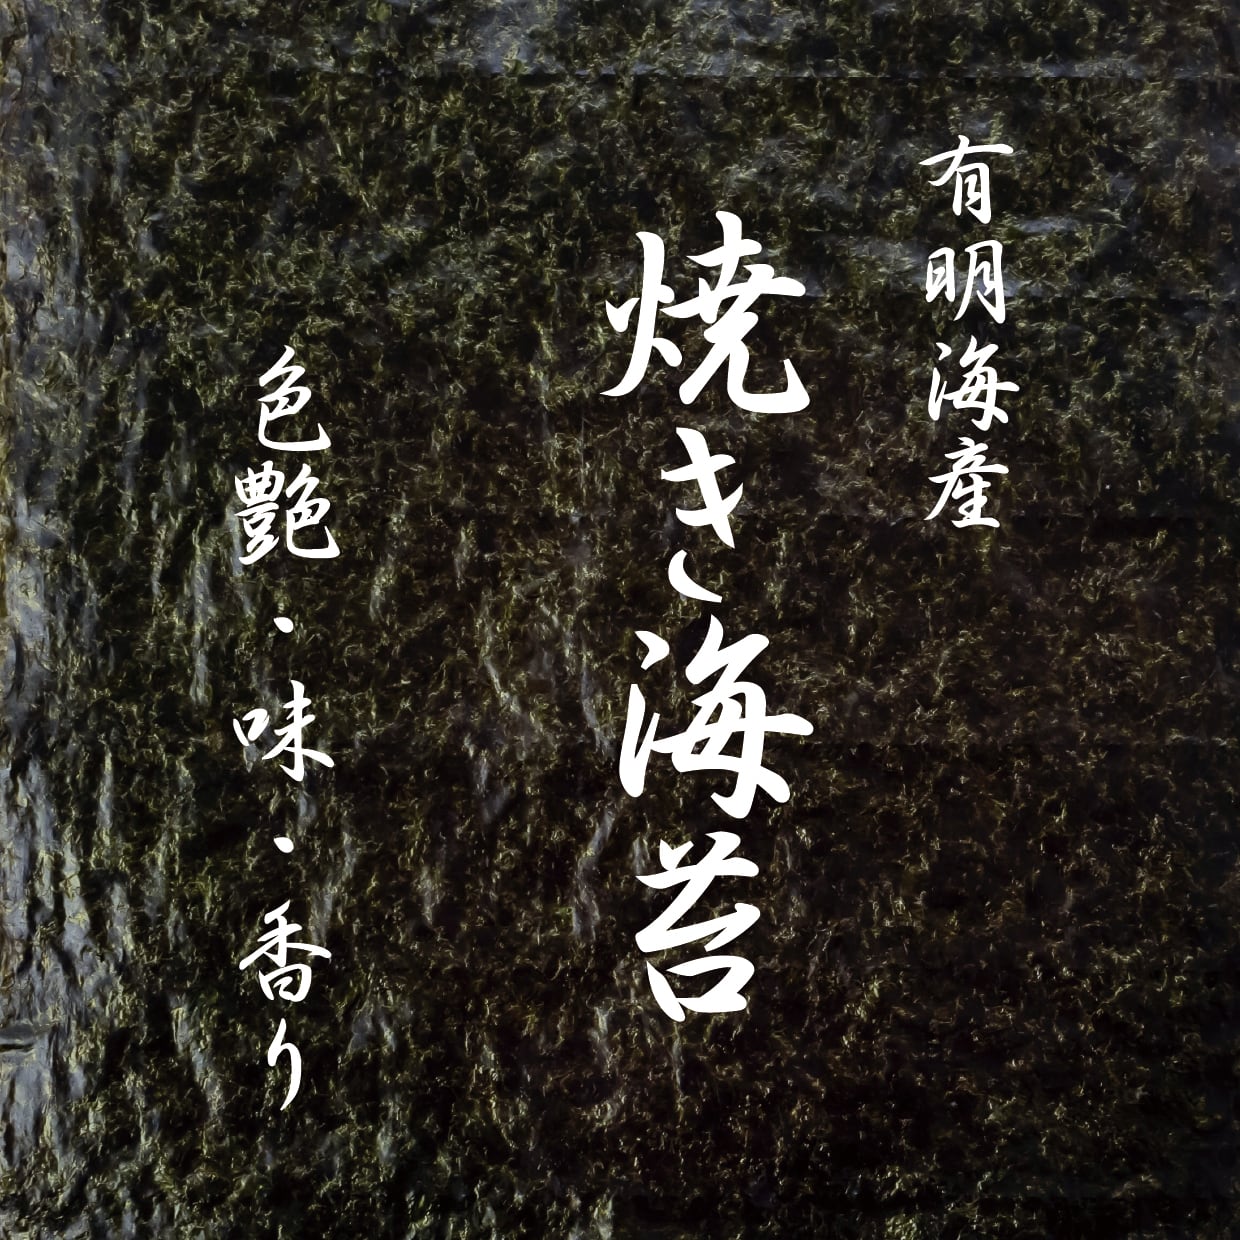 有明海産
焼き海苔
色艶・味・香り